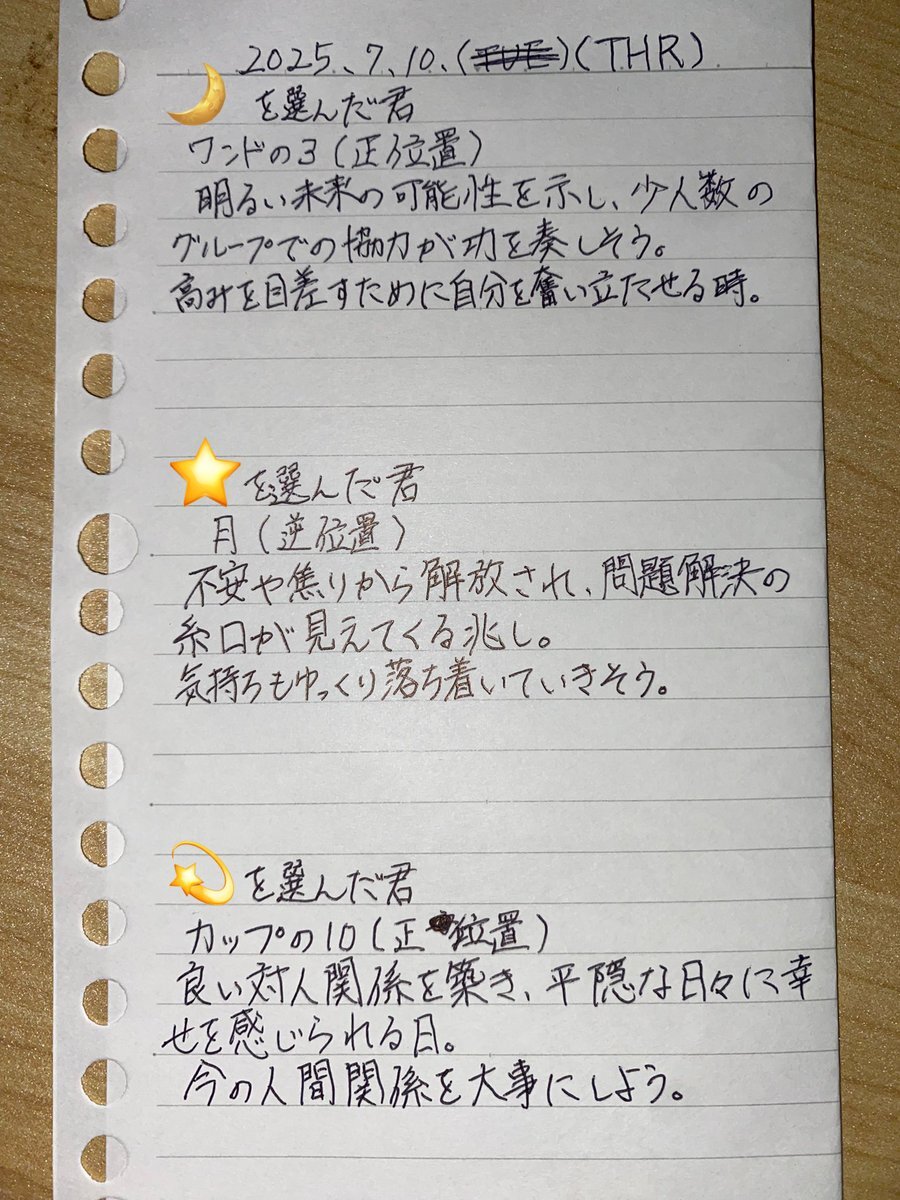 2025.7.10.(TUE)(THR)
🌙を選んだ君
ワンドの3(正位置)
明るい未来の可能性を示し、少人数の
グループでの協力が功を奏しそう。
高みを目差すために自分を奮い立たせる時。
⭐を選んだ君
月(逆位置)
不安や焦りから解放され、問題解決の
糸口が見えてくる兆し。
気持ちもゆっくり落ち着いていきそう。
💫を選んだ君
カップの10(正位置)
良い対人関係を築き、平隠な日々に幸
せを感じられる日。
今の人間関係を大事にしよう。